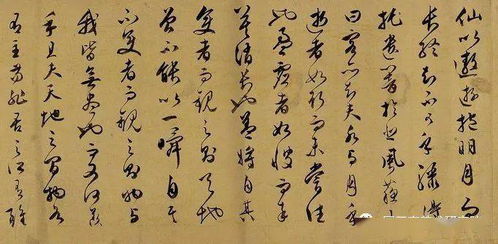 仙以遨遊抱明月而
長終知不可乎驟得
托遺響於悲風蘇子
曰客亦知夫水與月乎
逝者如斯而未嘗往
也盈虛者如彼而卒
莫消長也蓋將自其
變者而觀之則天地
曾不能以一瞬自其
不變者而觀之則物與
我皆無盡也而又何羨
乎且夫天地之間物各
有主苟非吾之所有雖